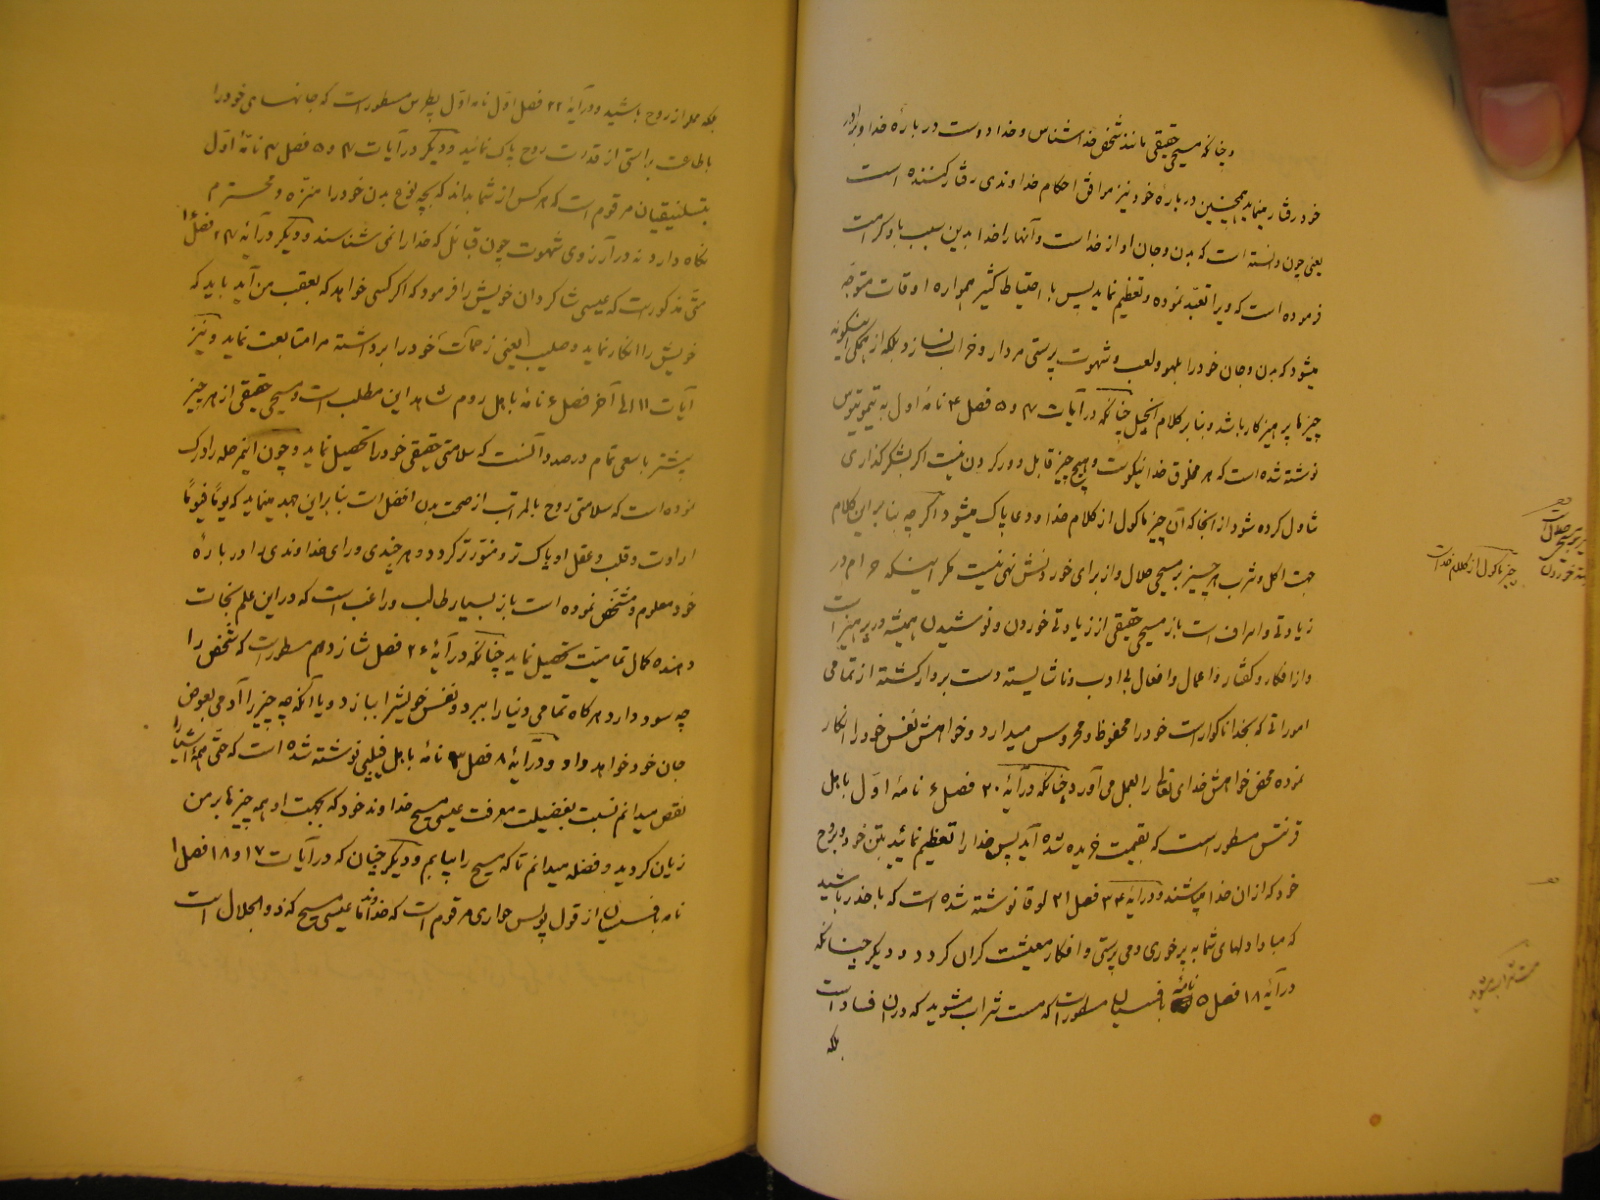 و چنانکه مسیحی حقیقی مانند شخص خداشناس و خدا دوست در بارهٔ خدا و برادر
خود رفتار مینماید همچنین در بارهٔ خود نیز موافق احکام خداوندی رفتار کننده است
یعنی چون دانسته است که بدن و جان او از خداست و آنها را خدا بدین سبب باو کرامت
فرموده است که ویرا تعبد نموده و تعظیم نماید پس با احتیاط کثیر همواره اوقات متوجه
میشود که بدن و جان خود را بلهو و لعب و شهوت پرستی مردار و خراب نسازد بلکه از همگی اینگونه
چیزها پرهیزکار باشد و بنا بر کلام انجیل چنانکه در آیات ۴ و ۵ فصل ۴ نامهٔ اول به تیموتیوس
نوشته شده است که هر مخلوق خدا نیکوست و هیچ چیز قابل دور کردن نیست اگر بشکرگذاری
تناول کرده شود از آنجا که آن چیز ماکول از کلام خدا و دعا پاک میشود اگر چه بنا بر این کلام
جهت اکل و شرب هر چیز بر مسیحی حلال و از برای خوردنش نهی نیست مگر اینکه حرام در
زیادتی و اسراف است باز مسیحی حقیقی از زیادتی خوردن و نوشیدن همیشه در پرهیز است
و از افکار و گفتار و اعمال و افعال بی ادب و ناشایسته دست بردار گشته از تمامی
اموراتی که بخدا ناگوار است خود را محفوظ و محروس میدارد و خواهش نفس خود را انکار
نموده محض خواهش خدای تعالی را بعمل می آورد چنانکه در آیهٔ ۲۰ فصل ۶ نامهٔ اول باهل
قرنتس مسطور است که بقیمت خریده شده آید پس خدا را تعظیم نمائید بتن خود و بروح
خود که از ان خدا میباشند و در آیهٔ ۳۴ فصل ۲۱ لوقا نوشته شده است که با حذر باشید
که مبادا دلهای شما به پرخوری و می پرستی و افکار معیشت گران گردد و دیگر چنانکه
در آیهٔ ۱۸ فصل ۵ نامهٔ بافسسیان مسطور است که مست شراب مشوید که در ان فساد است
بلکه
چیز ماکول از کلام خداست
مست شراب مشوید
بلکه مملو از روح باشید و در آیهٔ ۲۲ فصل اول نامه اول پطرس مسطور است که جانهای خود را
باطاعت براستی از قدرت روح پاک نمائید و دیگر در آیات ۴ و ۵ فصل ۴ نامهٔ اول
بتسلنیقیان مرقوم است که هر کس از شما بداند که بچه نوع بدن خود را منزه و محترم
نگاه دارد نه در آرزوی شهوت چون قبائل که خدا را نمی شناسند و دیگر در آیهٔ ۲۴ فصل ۱۶
متی مذکور است که عیسی شاگردان خویش را فرمود که اگر کسی خواهد که بعقب من آید باید که
خویش را انکار نماید و صلیب یعنی زحمات خود را برداشته مرا متابعت نماید و نیز
آیات ۱۱ الی آخر فصل ۶ نامهٔ باهل روم شاهد این مطلب است و مسیحی حقیقی از هر چیز
بیشتر با سعی تمام در صدد آنست که سلامتی حقیقی خود را تحصیل نماید و چون اینمرحله را درک
نموده است که سلامتی روح بالمراتب از صحت بدن افضل است بنا بر این جهد مینماید که یوماً فیوماً
ارادت و قلب و عقل او پاک تر و منورتر گردد و هر چندی ورای خداوندی را در بارهٔ
خود معلوم و مشخص نموده است باز بسیار طالب و راغب است که در این علم نجات
دهنده کمال تمامیت تحصیل نماید چنانکه در آیهٔ ۲۶ فصل شازدهم مسطور است که شخص را
چه سود دارد هرگاه تمامی دنیا را ببرد و نفس خویشرا ببازد و یا آنکه چه چیز را آدمی بعوض
جان خود خواهد داد و در آیهٔ ۸ فصل ۳ نامهٔ باهل فیلپی نوشته شده است که حتی همهٔ اشیا را
نقص میدانم نسبت بفضیلت معرفت عیسی مسیح خداوند خود که بجهت او همه چیزها بر من
زیان گردید و فضله میدانم تا که مسیح را بیابم و دیگر چنان که در آیات ۱۷ و ۱۸ فصل ۱
نامه بافسسیان از قول پولس حواری مرقوم است که خداوند ما عیسی مسیح که ذو الجلال است